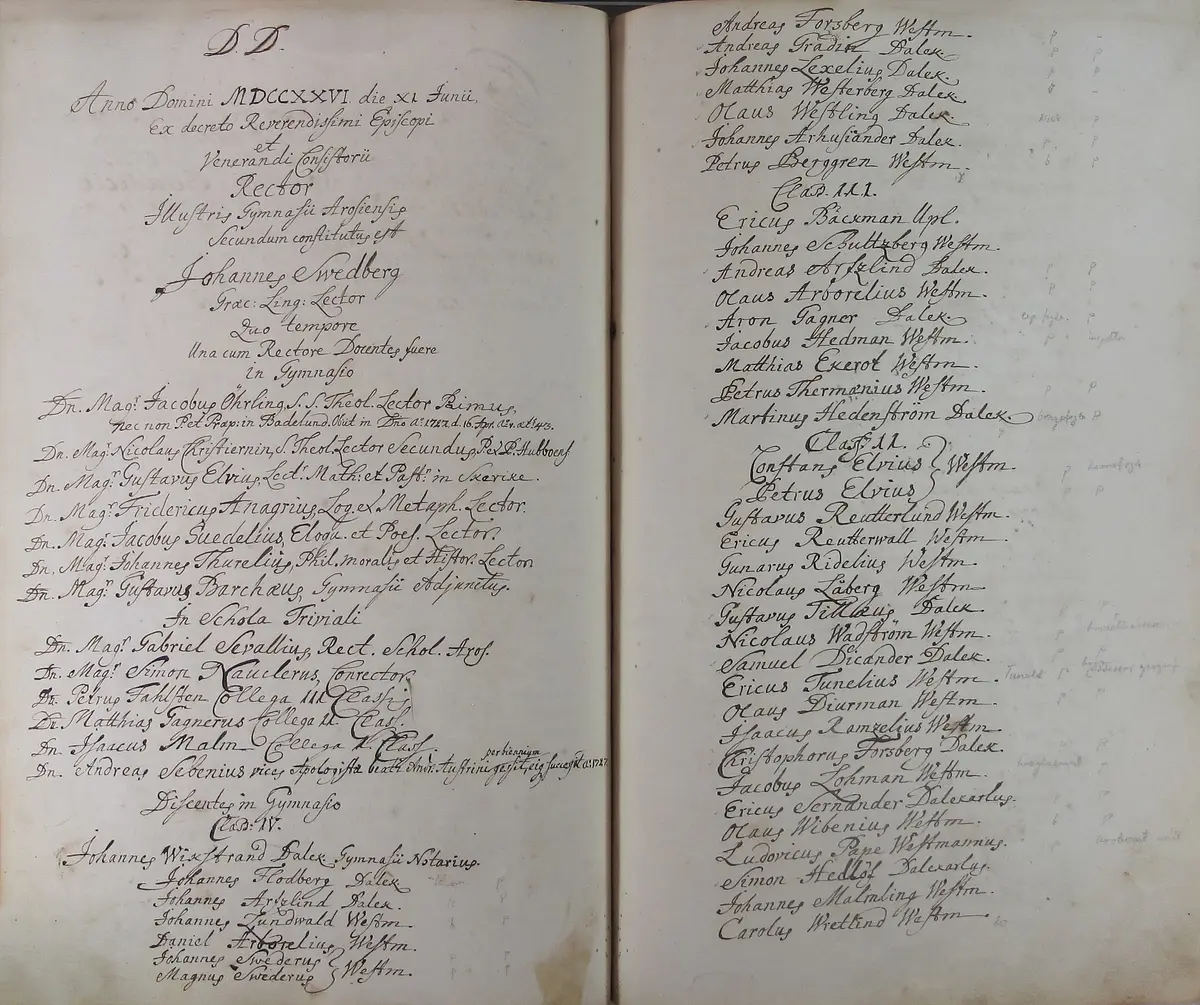 D.D.
Anno Domini MDCCXXVI. die XI Junii,
Ex decreto Reverendissimi Episcopi
et
Venerandi Consistorii
Rector
Illustris Gymnasii Arosiensis
Secundum constitutus est
Johannes Swedberg
Græc: Ling: Lector
Quo tempore
Una cum Rectore Docentes fuere
in Gymnasio
Dn. Magr. Jacobus Öhrling, S. S. Theol. Lector Primus,
nec non Past. Præp: in Badelund. Obiit in Dno Ao. 1727. d. 16. Apr.
Dn. Magr. Nicolaus Christiernin, S. Theol. Lector Secundus,
Dn. Magr. Gustavus Elvius, Lect. Math: et Pastr. in Skerike.
Dn. Magr. Fridericus Anagrius, Log. et Metaph. Lector.
Dn. Magr. Jacobus Suedelius, Eloqu. et Poes. Lector.
Dn. Magr. Johannes Thurelius, Phil. moralis et Histor. Lector
Dn. Magr. Gustavus Barchæus, Gymnasii Adjunctus.
In Schola Triviali
Dn. Magr. Gabriel Sevallius, Rect. Schol. Aros.
Dn. Magr. Simon Nauclerus, Conrector.
Dn. Petrus Fahlsten Collega III Classis
Dn. Matthias Gagnerus Collega II. Class.
Dn. Isaacus Malm Collega I. Class.
perbiennium
Dn. Andreas Sebenius vices Apologistæ beati Andr. Austrini gessit, eiq; successit Ao. 1727
Discentes in Gymnasio
Class: IV.
Johannes Wikstrand Dalek Gymnasii Notarius.
Johannes Flodberg Dalek
Johannes Arfzlind Dalek.
Johannes Zundwald Westm.
Daniel Arborelius Westm.
Johannes Swederus
Magnus Swederus } Westm.
Andreas Forsberg Westm.
Andreas Gradin Dalek.
Johannes Lexelius, Dalek.
Matthias Westerberg Dalek.
Olaus Westling Dalek.
Johannes Arhusiander Dalek.
Petrus Berggren Westm.
Class. III.
Ericus Bäckman Upl.
Johannes Schultzberg Westm.
Andreas Arfzlind Dalek.
Olaus Arborelius Westm.
Aron Gagner Dalek.
Jacobus Hedman Westm.
Matthias Ekerot Westm.
Petrus Thermænius Westm.
Martinus Hedenström Dalek.
Class: II.
Constans Elvius } Westm.
Petrus Elvius
Gustavus Reutterlund Westm.
Ericus Reutterwall Westm.
Gunarus Ridelius Westm.
Nicolaus Låberg Westm.
Gustavus Tillæus Dalek.
Nicolaus Wadström Westm.
Samuel Dicander Dalek.
Ericus Tunelius Westm.
Olaus Diurman Westm.
Isaacus Ramzelius Westm.
Christophorus Forsberg Dalek.
Jacobus Lohman Westm.
Ericus Fernander Dalekarlus.
Olaus Wibenius Westm.
Ludovicus Pape Westmannus.
Simon Hedlöf Dalekarlus.
Johannes Malmling Westm.
Carolus Wretlind Westm.